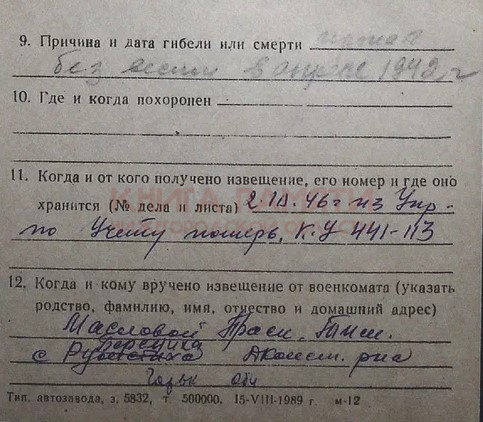 9. Причина и дата гибели или смерти пропал
без вести в апреле 1942 г
10. Где и когда похоронен
11. Когда и от кого получено извещение, его номер и где оно
хранится (№ дела и листа) 2.IV.46г из Упр.
по Учету потерь, К.У 441-113
12. Когда и кому вручено извещение от военкомата (указать
родство, фамилию, имя, отчество и домашний адрес)
Масловой
с
Тип. автозавода, з. 5832, т. 500000, 15-VIII-1989 г. м-12
КНИГА ПАМЯТИ